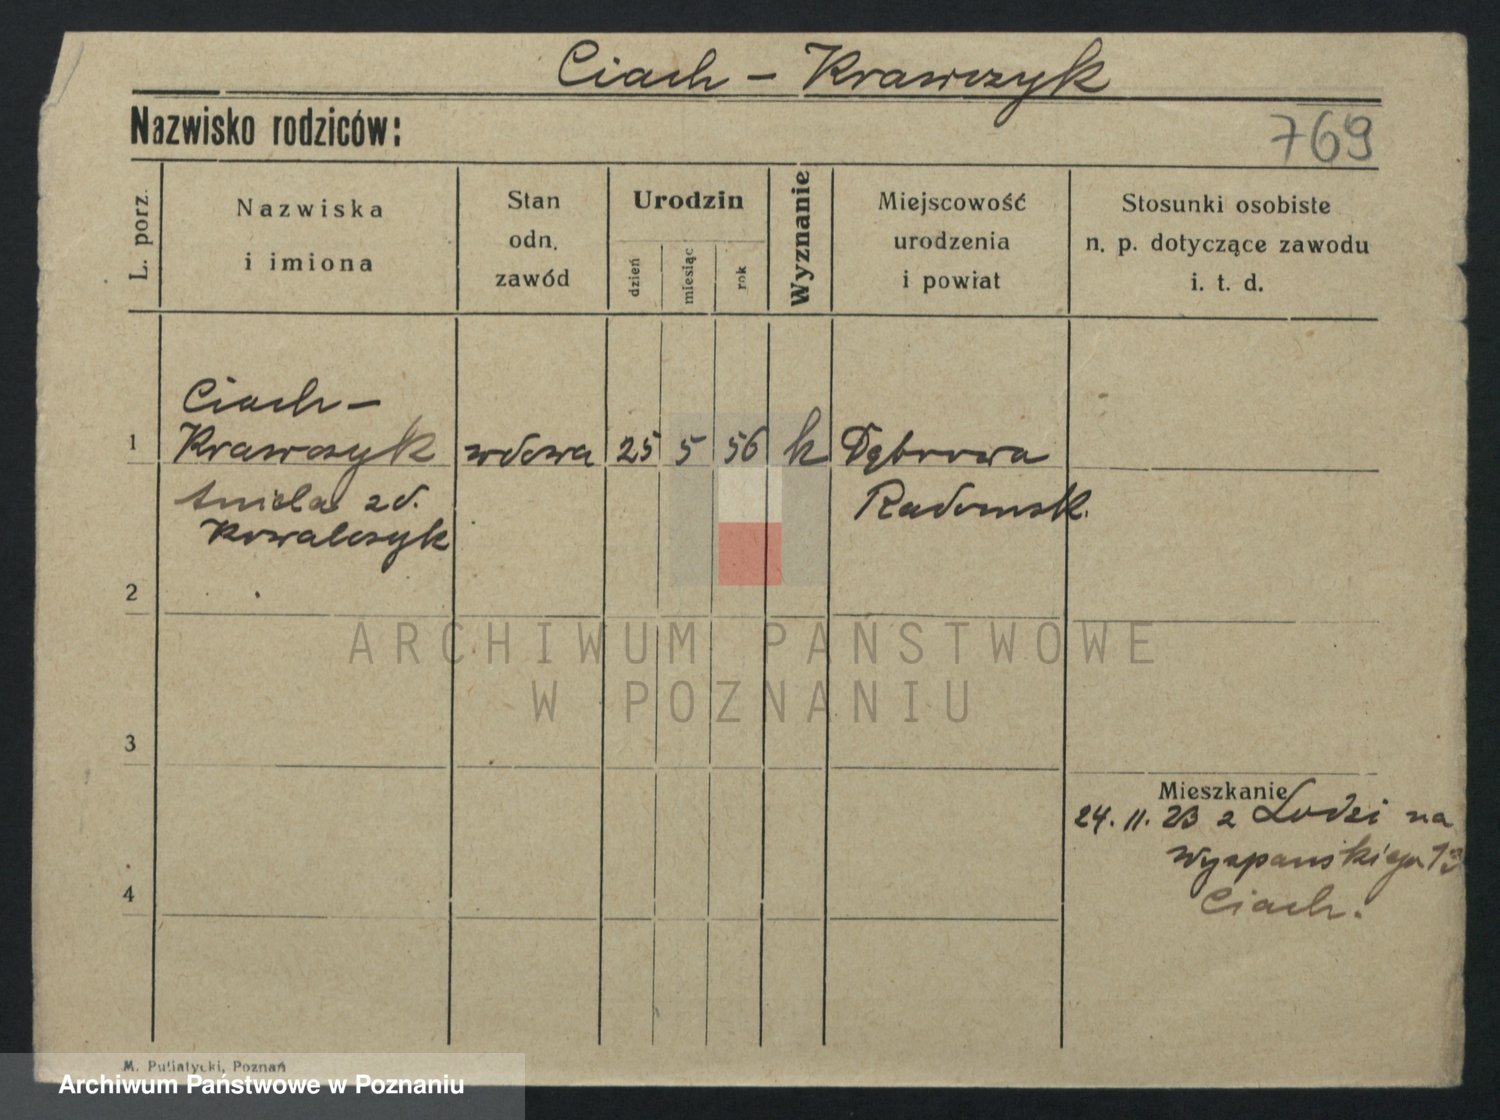 Ciach – Krawczyk
Nazwisko rodziców:
769
L. porz.
Nazwiska
i imiona
Stan
odn.
zawód
Urodzin
dzień
miesiąc
rok
Wyznanie
Miejscowość
urodzenia
i powiat
Stosunki osobiste
n. p. dotyczące zawodu
i. t. d.
Ciach –
1 Krawczyk wdowa 25 5 56 k Dębrowa
Aniela zd. Radomsk.
Kowalczyk
2
ARCHIWUM PAŃSTWOWE
W POZNANIU
3
Mieszkanie
24. 11. 23 z Lodzi na
Wyspańskiego 13
Ciach.
4
M. Putiatycki, Poznań
Archiwum Państwowe w Poznaniu